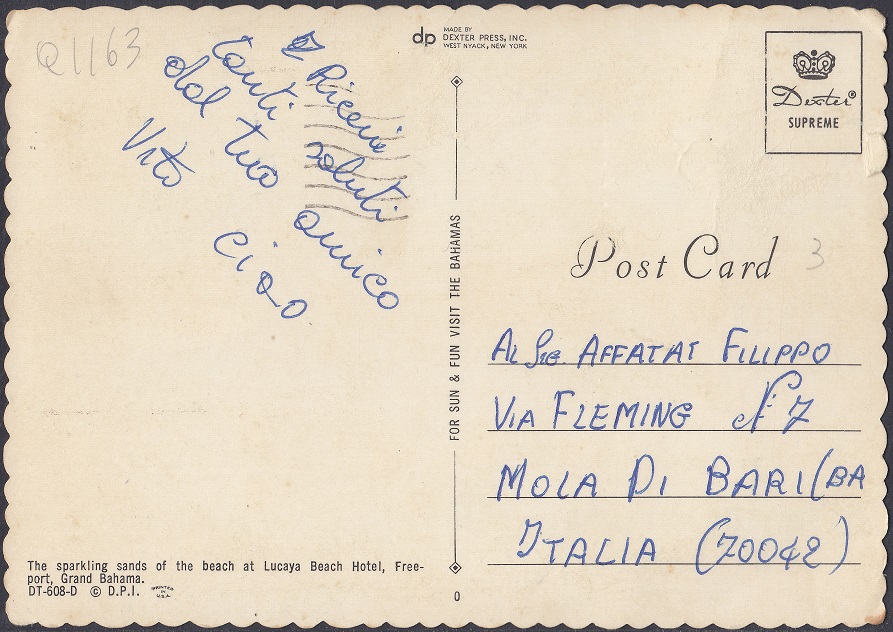 Q1163
Ricevi
tanti saluti
dal tuo amico
Vito ciao
dp MADE BY
DEXTER PRESS, INC.
WEST NYACK, NEW YORK
Dexter®
SUPREME
FOR SUN & FUN VISIT THE BAHAMAS
Post Card 3
AL Sig. AFFATAT FILIPPO
VIA FLEMING N° 7
MOLA DI BARI (BA
ITALIA (70042)
The sparkling sands of the beach at Lucaya Beach Hotel, Free-
port, Grand Bahama.
DT-608-D © D.P.I. PRINTED IN U.S.A.
0